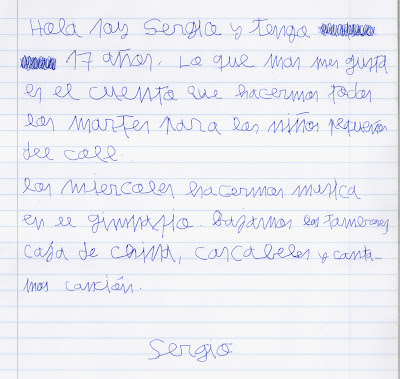 Hola soy Sergio y tengo
17 años. Lo que mas me gusta
es el cuento que hacemos todos
los martes para los niños pequeños
del coll.
los miercoles hacermos musica
en el gimnasio. Bajamos los tambores
caja de china, cascabeles y canta-
mos canción.
Sergio